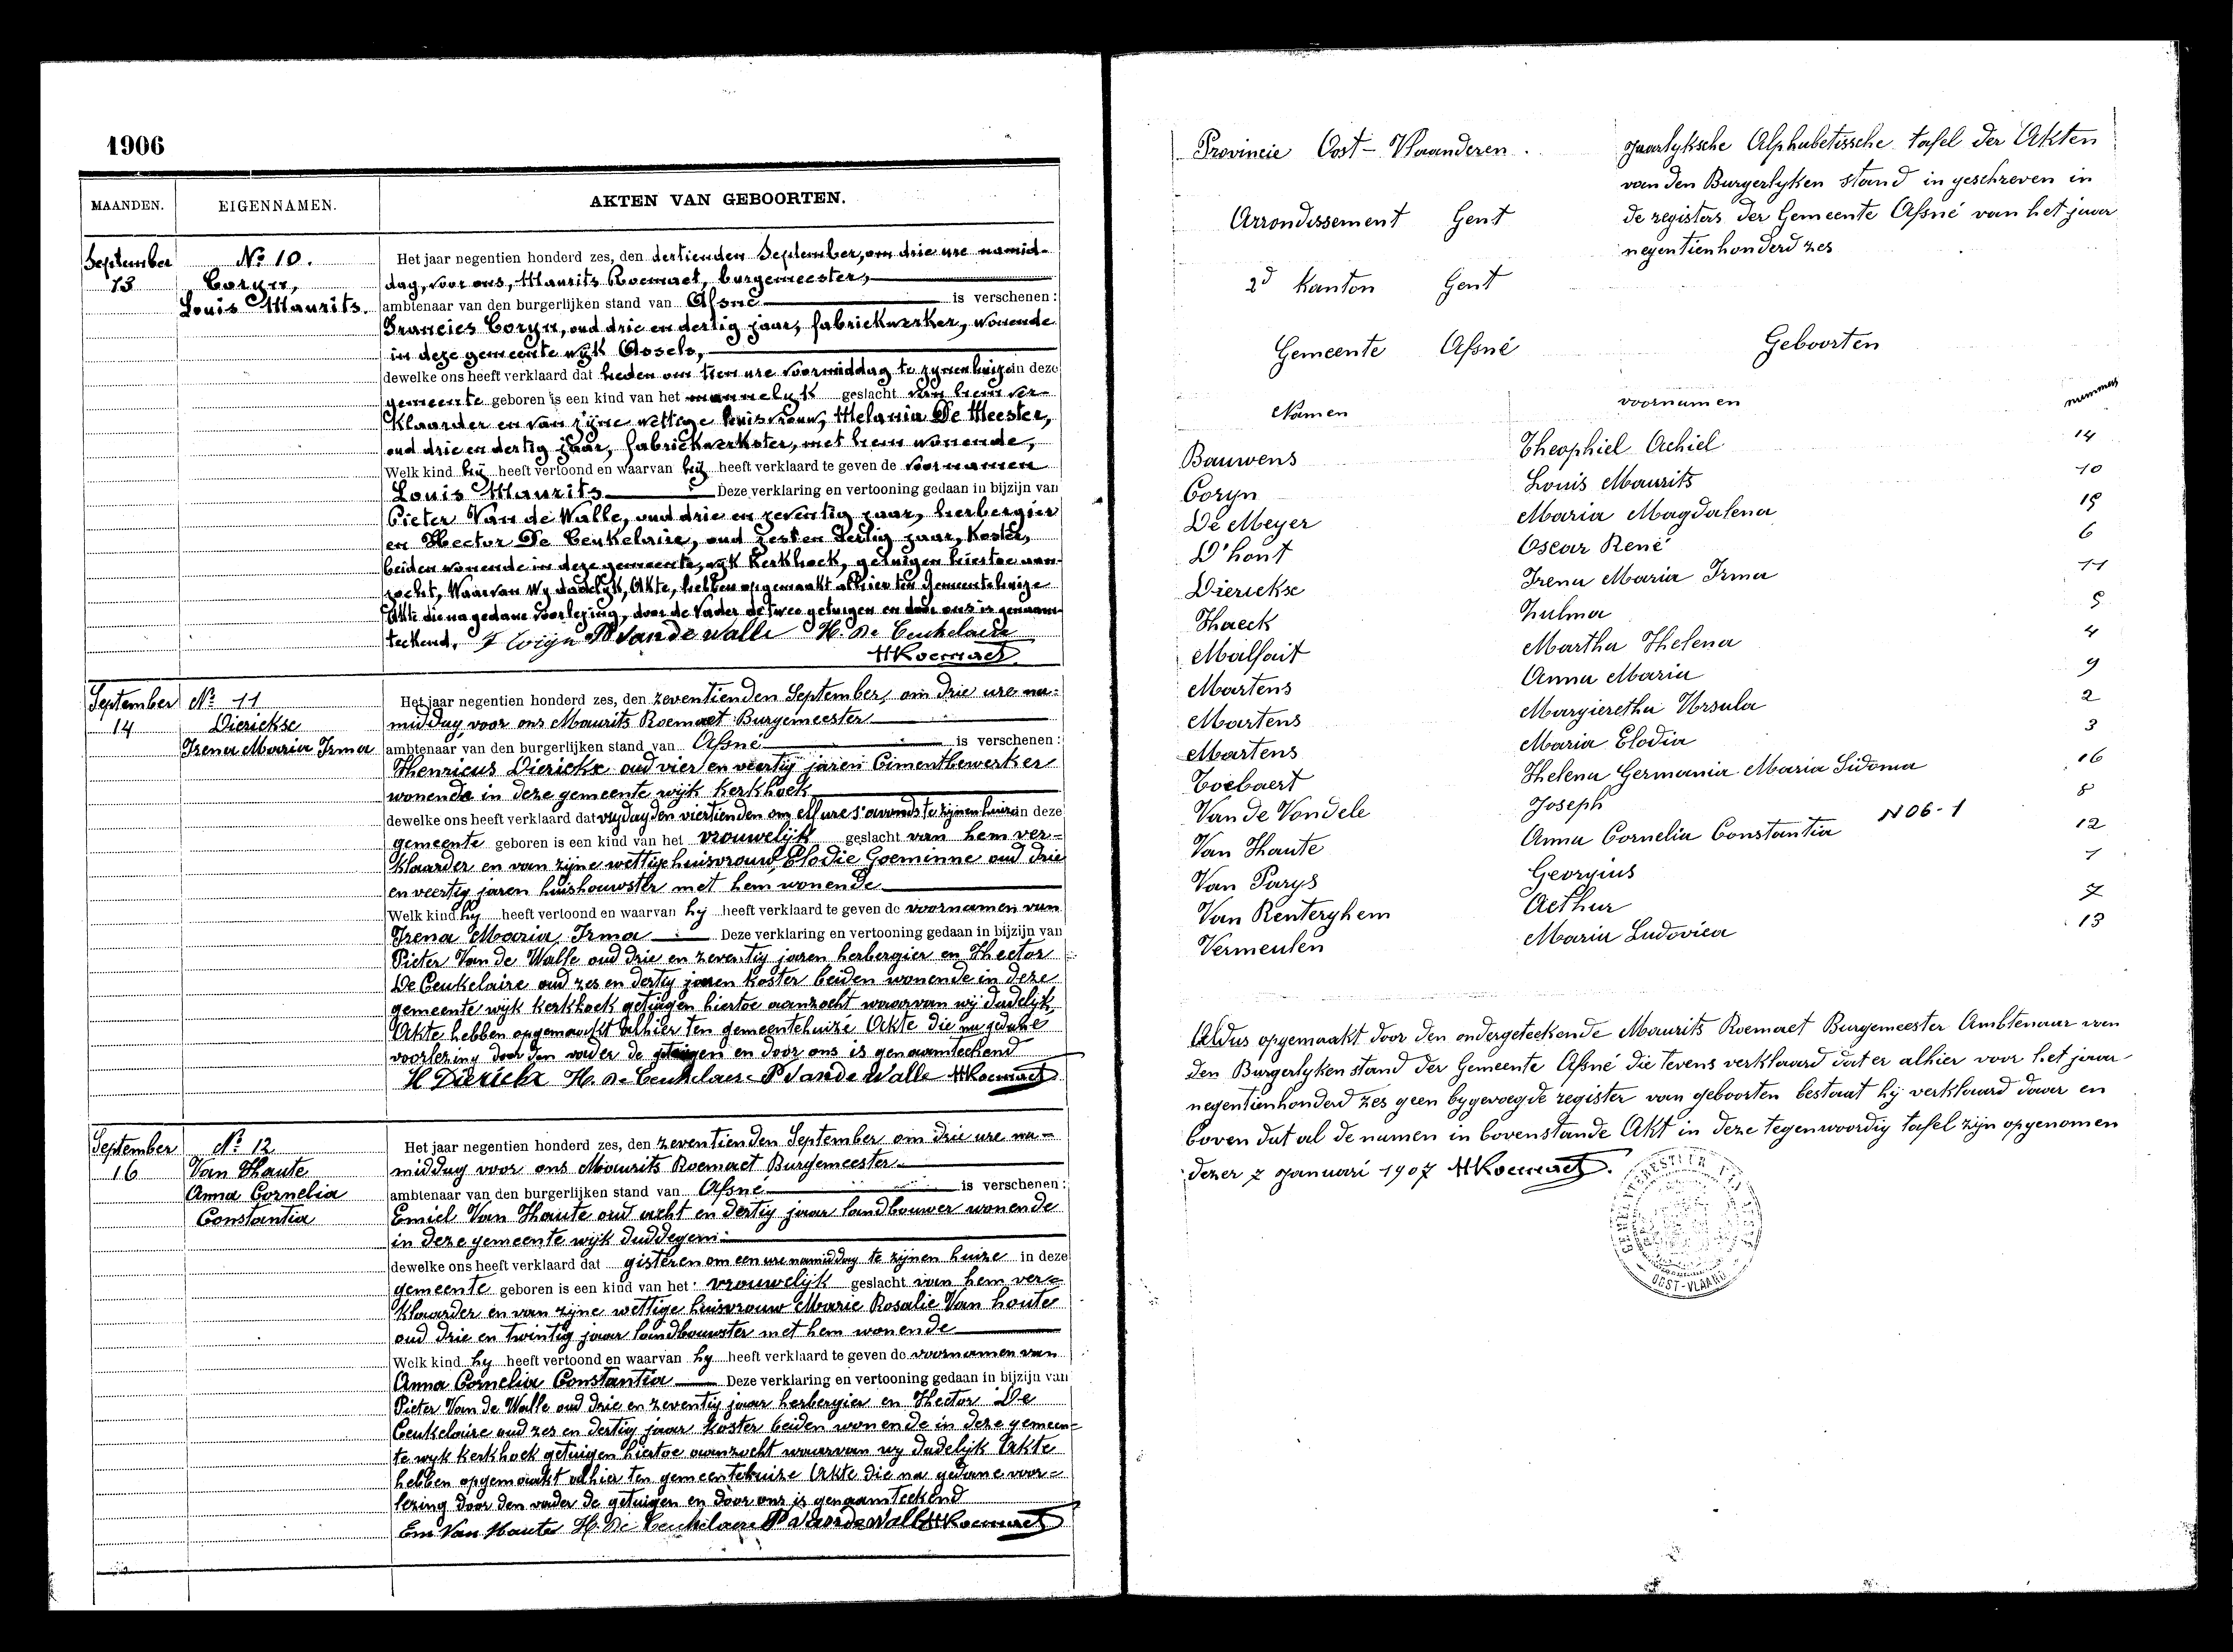 1906
MAANDEN. EIGENNAMEN. AKTEN VAN GEBOORTEN.
September 13
No 10.
Coryn,
Louis Maurits.
Het jaar negentien honderd zes, den dertienden September, om drie ure namid-
dag, voor ons, Maurits Roemaet, burgemeester,
ambtenaar van den burgerlijken stand van Afsné is verschenen:
Francies Coryn, oud drie en dertig jaar, fabriekwerker, wonende
in deze gemeente wijk Assels,
dewelke ons heeft verklaard dat heden om tien ure voormiddag te zynen huize in deze
gemeente geboren is een kind van het mannelyk geslacht van hem ver-
klaarder en van zijne wettige huisvrouw, Melania De Meester,
oud drie en dertig jaar, fabriekwerkster, met hem wonende,
Welk kind hij heeft vertoond en waarvan hij heeft verklaard te geven de voornamen
Louis Maurits Deze verklaring en vertooning gedaan in bijzijn van
Pieter Van de Walle, oud drie en zeventig jaar, herbergier
en Hector De Ceukelaire, oud zes en dertig jaar, koster,
beiden wonende in deze gemeente, wijk Kerkhoek, getuigen hiertoe aan-
zocht, Waarvan wy dadelyk, Akte, hebben opgemaakt alhier ten Gemeentehuize
Akte die na gedane voorlezing, door de Vader de twee getuigen en door ons is genaam-
teekend. F Coryn P Vande Walle H. De Ceukelaire
MRoemaet
September 14
No 11
Dierickse
Irena Maria Irma
Het jaar negentien honderd zes, den zeventienden September, om drie ure na-
middag voor ons Maurits Roemaet Burgemeester
ambtenaar van den burgerlijken stand van Afsné is verschenen:
Henricus Dierickx oud vier en veertig jaren Cimentbewerker
wonende in deze gemeente wijk Kerkhoek
dewelke ons heeft verklaard dat vrijdag den viertienden om elf ure s'avonds te zijnen huize in deze
gemeente geboren is een kind van het vrouwelijk geslacht van hem ver-
klaarder en van zijne wettige huisvrouw, Elodie Goeminne oud drie
en veertig jaren huishouwster met hem wonende
Welk kind hy heeft vertoond en waarvan hy heeft verklaard te geven de voornamen van
Irena Maria Irma Deze verklaring en vertooning gedaan in bijzijn van
Pieter Van de Walle oud drie en zeventig jaren herbergier en Hector
De Ceukelaire oud zes en dertig jaren Koster beiden wonende in deze
gemeente wijk kerkhoek getuigen hiertoe aanzocht waarvan wij dadelijk
Akte hebben opgemaakt alhier ten gemeentehuize Akte die na gedane
voorlezing door den vader de getuigen en door ons is genaamteekend
H Dierickx H. De Ceukelaere P Vande Walle MRoemaet
September 16
No 12
Van Haute
Anna Cornelia
Constantia
Het jaar negentien honderd zes, den zeventienden September om drie ure na-
middag voor ons Maurits Roemaet Burgemeester
ambtenaar van den burgerlijken stand van Afsné is verschenen:
Emiel Van Haute oud acht en dertig jaar landbouwer wonende
in deze gemeente wijk Duddegem
dewelke ons heeft verklaard dat gisteren om een ure namiddag te zijnen huize in deze
gemeente geboren is een kind van het vrouwelijk geslacht van hem ver-
klaarder en van zijne wettige huisvrouw Marie Rosalie Van houte
oud drie en twintig jaar landbouwster met hem wonende
Welk kind hy heeft vertoond en waarvan hy heeft verklaard te geven de voornamen van
Anna Cornelia Constantia Deze verklaring en vertooning gedaan in bijzijn van
Pieter Van de Walle oud drie en zeventig jaar herbergier en Hector De
Ceukelaire oud zes en dertig jaar koster beiden wonende in deze gemeen-
te wyk kerkhoek getuigen hiertoe aanzocht waarvan wy dadelijk Akte
hebben opgemaakt alhier ten gemeentehuize Akte die na gedane voor-
lezing door den vader de getuigen en door ons is genaamteekend
Em Van Haute H. De Ceukelaere P Vandewalle MRoemaet
Provincie Oost-Vlaanderen.
Arrondissement Gent
2d Kanton Gent
Gemeente Afsné
Jaarlyksche Alphabetissche tafel der Akten
van den Burgerlyken stand in geschreven in
de registers der Gemeente Afsné van het jaar
negentienhonderd zes
Geboorten
Namen voornamen nummers
Bauwens Theophiel Achiel 14
Coryn Louis Maurits 10
De Meyer Maria Magdalena 15
D'hont Oscar René 6
Dierickse Irena Maria Irma 11
Haeck Zulma 5
Malfait Martha Helena 4
Martens Anna Maria 9
Martens Margieretha Ursula 2
Martens Maria Elodia 3
Toebaert Helena Germania Maria Sidonia 16
Van de Vondele Joseph 8
Van Haute Anna Cornelia Constantia N06-1 12
Van Parys Georgius 1
Van Renterghem Aethur 7
Vermeulen Maria Ludovica 13
Aldus opgemaakt door den ondergeteekende Maurits Roemaet Burgemeester Ambtenaar van
den Burgerlyken stand der Gemeente Afsné die tevens verklaard dat er alhier voor het jaar
negentienhonderd zes geen bygevoegde register van geboorten bestaat hy verklaard daar en
boven dat al de namen in bovenstande Akt in deze tegenwoordig tafel zijn opgenomen
dezer 7 Januari 1907 MRoemaet.
OOST-VLAAND